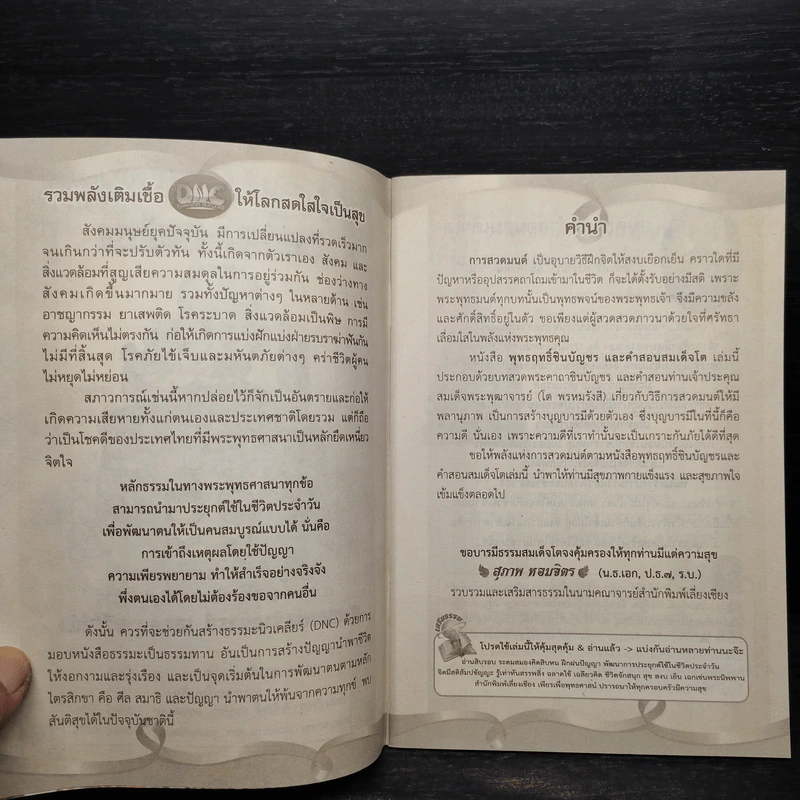 รวมพลังเติมเชื้อ DNC ให้โลกสดใสใจเป็นสุข
สังคมมนุษย์ยุคปัจจุบัน มีการเปลี่ยนแปลงที่รวดเร็วมาก
จนเกินกว่าที่จะปรับตัวทัน ทั้งนี้เกิดจากตัวเราเอง สังคม และ
สิ่งแวดล้อมที่สูญเสียความสมดุลในการอยู่ร่วมกัน ช่องว่างทาง
สังคมเกิดขึ้นมากมาย รวมทั้งปัญหาต่างๆ ในหลายด้าน เช่น
อาชญากรรม ยาเสพติด โรคระบาด สิ่งแวดล้อมเป็นพิษ การมี
ความคิดเห็นไม่ตรงกัน ก่อให้เกิดการแบ่งฝักแบ่งฝ่ายรบราฆ่าฟันกัน
ไม่มีที่สิ้นสุด โรคภัยไข้เจ็บและมหันตภัยต่างๆ คร่าชีวิตผู้คน
ไม่หยุดไม่หย่อน
สภาวการณ์เช่นนี้หากปล่อยไว้ก็จักเป็นอันตรายและก่อให้
เกิดความเสียหายทั้งแก่ตนเองและประเทศชาติโดยรวม แต่ก็ถือ
ว่าเป็นโชคดีของประเทศไทยที่มีพระพุทธศาสนาเป็นหลักยึดเหนี่ยว
จิตใจ
หลักธรรมในทางพระพุทธศาสนาทุกข้อ
สามารถนำมาประยุกต์ใช้ในชีวิตประจำวัน
เพื่อพัฒนาตนให้เป็นคนสมบูรณ์แบบได้ นั่นคือ
การเข้าถึงเหตุผลโดยใช้ปัญญา
ความเพียรพยายาม ทำให้สำเร็จอย่างจริงจัง
พึ่งตนเองได้โดยไม่ต้องร้องขอจากคนอื่น
ดังนั้น ควรที่จะช่วยกันสร้างธรรมะนิวเคลียร์ (DNC) ด้วยการ
มอบหนังสือธรรมะเป็นธรรมทาน อันเป็นการสร้างปัญญานำพาชีวิต
ให้งอกงามและรุ่งเรือง และเป็นจุดเริ่มต้นในการพัฒนาตนตามหลัก
ไตรสิกขา คือ ศีล สมาธิ และปัญญา นำพาตนให้พ้นจากความทุกข์ พบ
สันติสุขได้ในปัจจุบันชาตินี้
คำนำ
การสวดมนต์ เป็นอุบายวิธีฝึกจิตให้สงบเยือกเย็น คราวใดที่มี
ปัญหาหรืออุปสรรคถาโถมเข้ามาในชีวิต ก็จะได้ตั้งรับอย่างมีสติ เพราะ
พระพุทธมนต์ทุกบทนั้นเป็นพุทธพจน์ของพระพุทธเจ้า จึงมีความขลัง
และศักดิ์สิทธิ์อยู่ในตัว ขอเพียงแต่ผู้สวดสวดภาวนาด้วยใจที่ศรัทธา
เลื่อมใสในพลังแห่งพระพุทธคุณ
หนังสือ พุทธฤทธิ์ชินบัญชร และคำสอนสมเด็จโต เล่มนี้
ประกอบด้วยบทสวดพระคาถาชินบัญชร และคำสอนท่านเจ้าประคุณ
สมเด็จพระพุฒาจารย์ (โต พรหมรังสี) เกี่ยวกับวิธีการสวดมนต์ให้มี
พลานุภาพ เป็นการสร้างบุญบารมีด้วยตัวเอง ซึ่งบุญบารมีในที่นี้ก็คือ
ความดี นั่นเอง เพราะความดีที่เราทำนั้นจะเป็นเกราะกันภัยได้ดีที่สุด
ขอให้พลังแห่งการสวดมนต์ตามหนังสือพุทธฤทธิ์ชินบัญชรและ
คำสอนสมเด็จโตเล่มนี้ นำพาให้ท่านมีสุขภาพกายแข็งแรง และสุขภาพใจ
เข้มแข็งตลอดไป
ขอบารมีธรรมสมเด็จโตจงคุ้มครองให้ทุกท่านมีแต่ความสุข
สุภาพ หอมจิตร (น.ธ.เอก, ป.ธ.๗, ร.บ.)
รวบรวมและเสริมสารธรรมในนามคณาจารย์สำนักพิมพ์เลี่ยงเชียง
เสบียงธรรม
โปรดใช้เล่มนี้ให้คุ้มสุดคุ้ม & อ่านแล้ว -> แบ่งกันอ่านหลายท่านนะจ๊ะ
อ่านสิบรอบ ระดมสมองคิดสิบหน ฝึกฝนปัญญา พัฒนาการประยุกต์ใช้ในชีวิตประจำวัน
จิตมีสติสัมปชัญญะ รู้เท่าทันสรรพสิ่ง ฉลาดใช้ เฉลียวคิด ชีวิตจักสนุก สุข สงบ เย็น เฉกเช่นพระนิพพาน
สำนักพิมพ์เลี่ยงเชียง เพียรเพื่อพุทธศาสน์ ปรารถนาให้ทุกครอบครัวมีความสุข